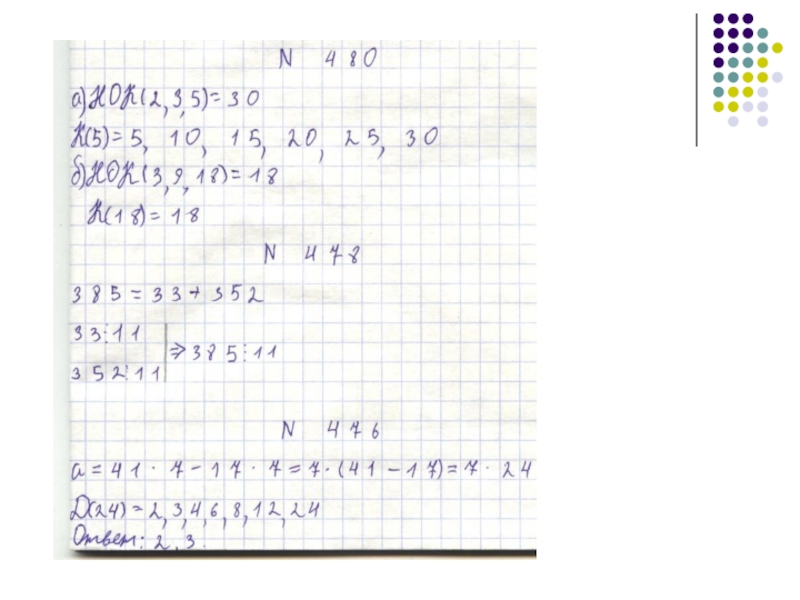 N 480
а) НОК(2,3,5)=30
К(5)=5, 10, 15, 20, 25, 30
б) НОК(3,9,18)=18
К(18)=18
N 478
385=33+352
33⋮11
⇒385⋮11
352⋮11
N 476
a=41·7-17·7=7·(41-17)=7·24
D(24)=2,3,4,6,8,12,24
Ответ: 2,3.